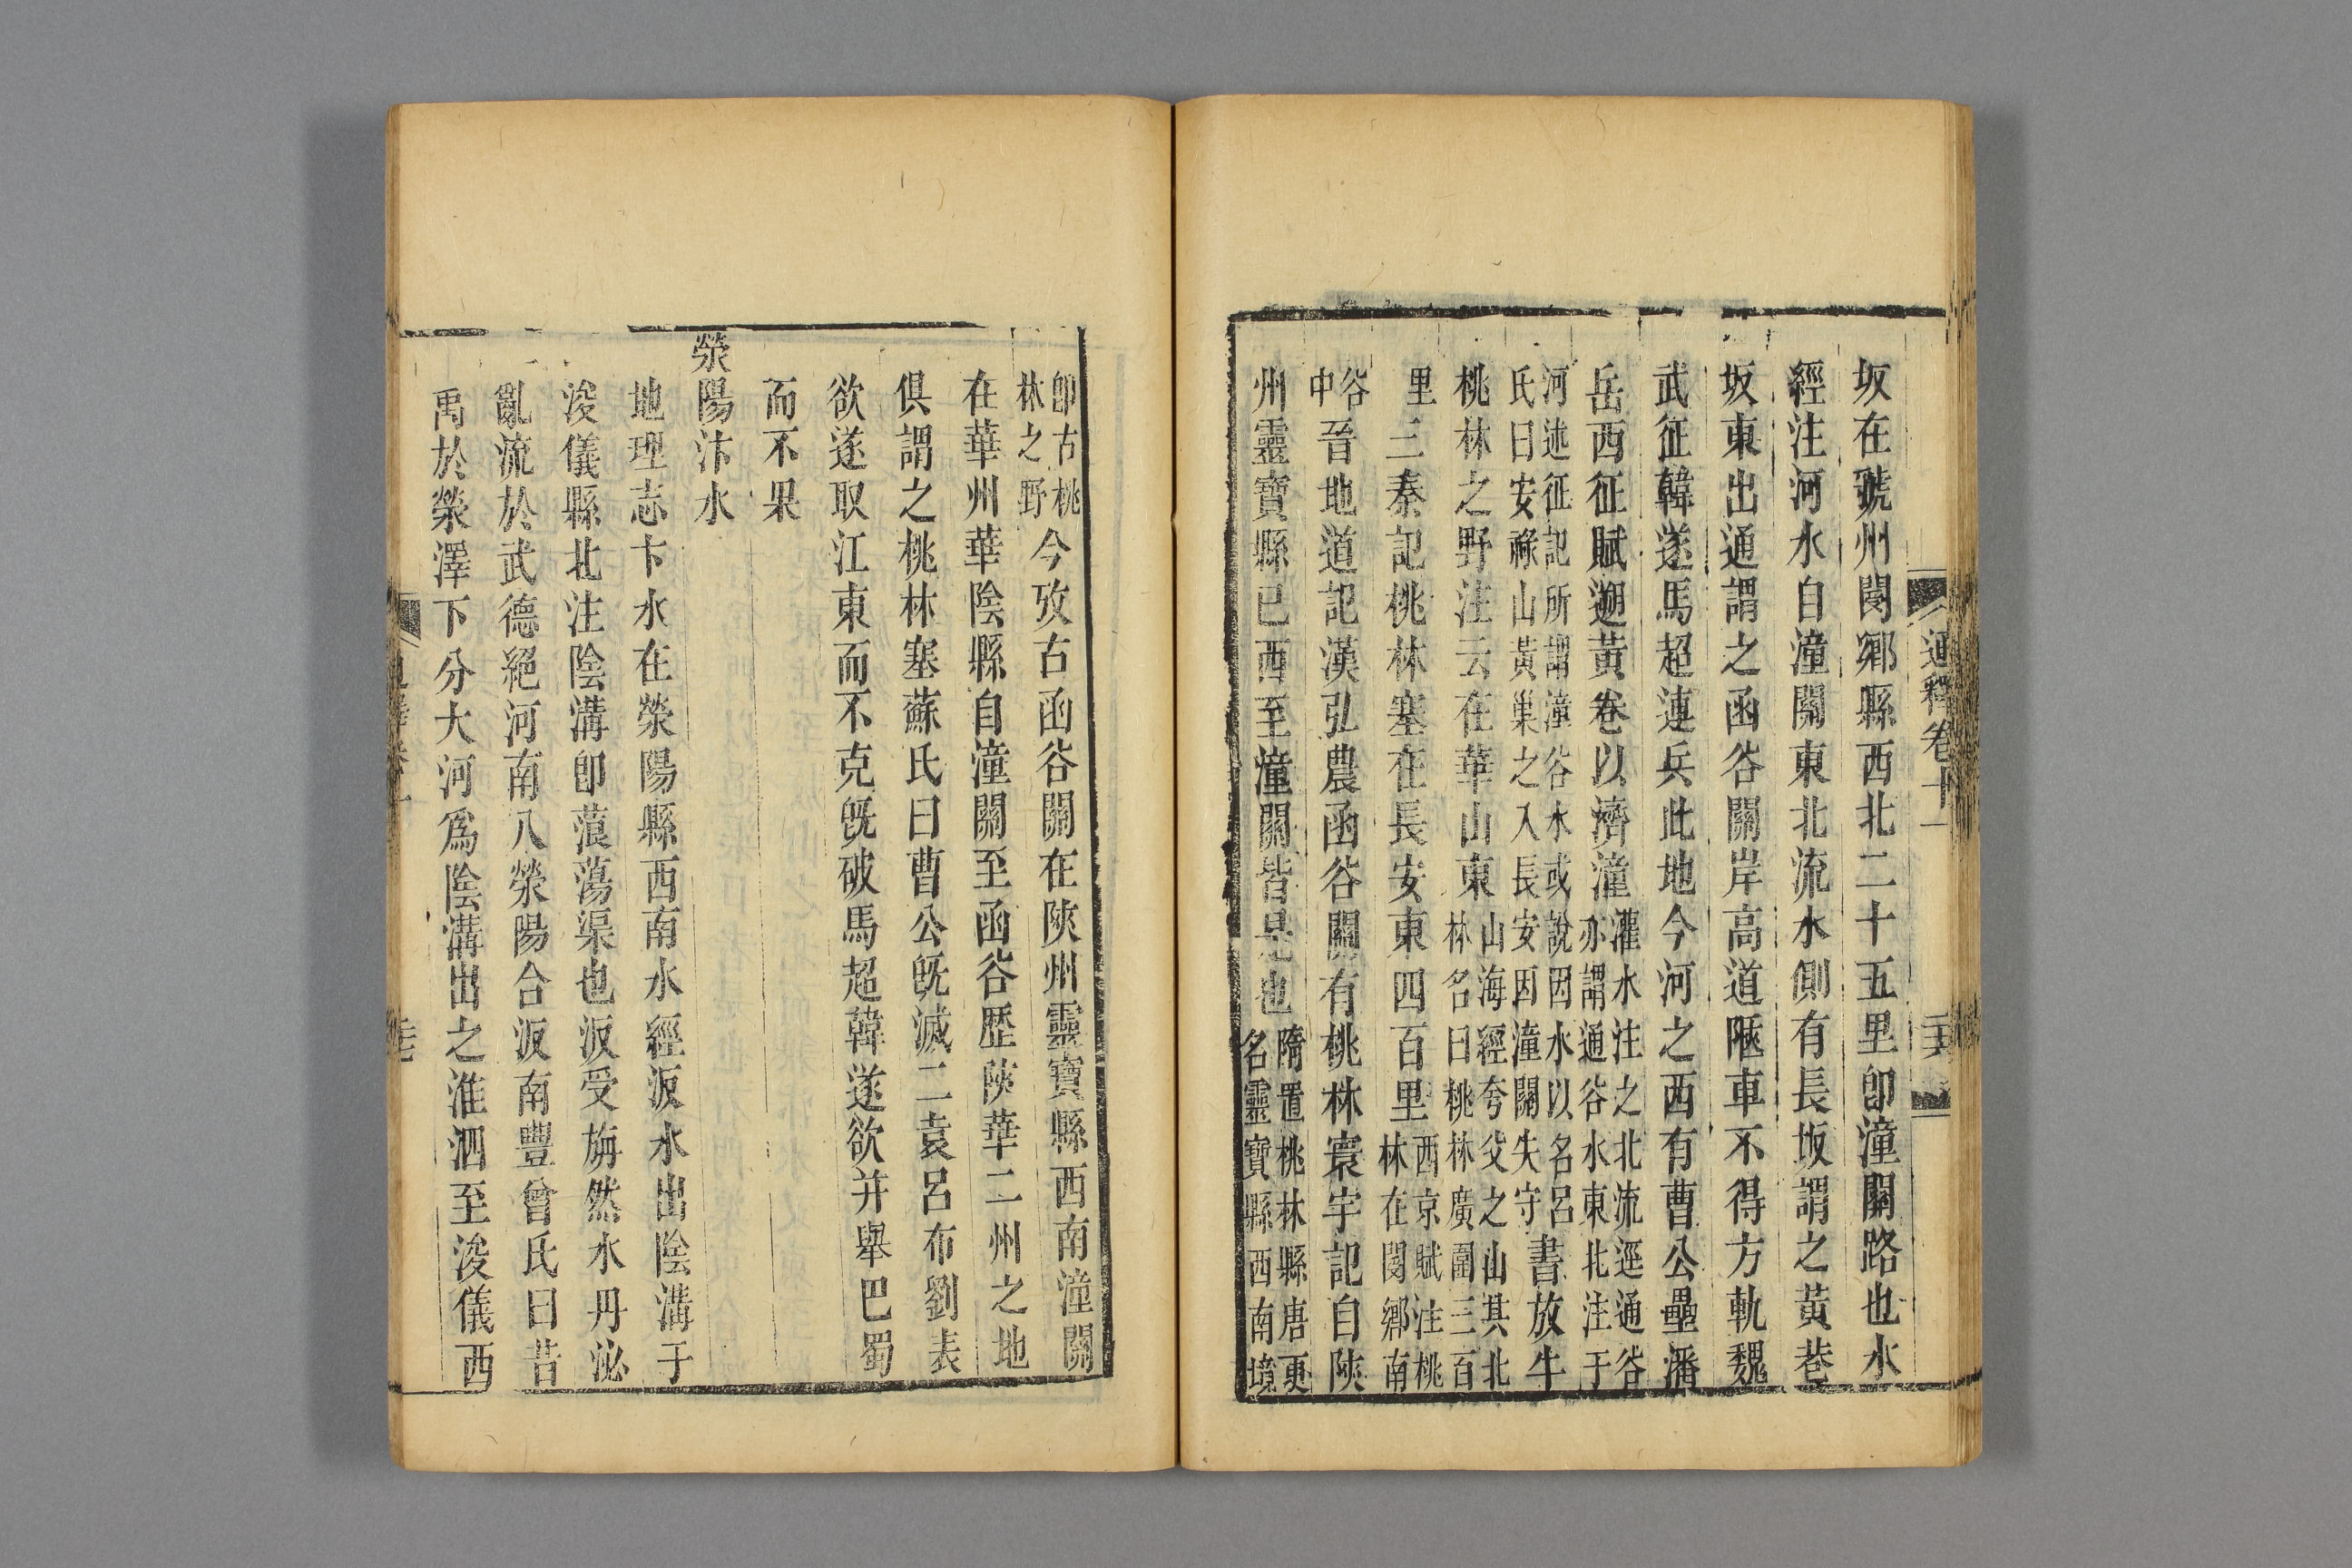 通釋卷十一
坂在虢州閿鄉縣西北二十五里卽潼關路也水
經注河水自潼關東北流水側有長坂謂之黃巷
坂東出通謂之函谷關岸高道陿車不得方軌魏
武征韓遂馬超連兵此地今河之西有曹公壘潘
岳西征賦遡黃卷以濟潼灌水注之北流逕通谷
亦謂通谷水東北注于
河述征記所謂潼谷水或說因水以名呂
氏曰安祿山黃巢之入長安因潼關失守書放牛
桃林之野注云在華山東山海經夸父之山其北
林名曰桃林廣圍三百
里三秦記桃林塞在長安東四百里西京賦注桃
林在閿鄉南
谷
中晉地道記漢弘農函谷關有桃林寰宇記自陝
州靈寶縣已西至潼關皆是也隋置桃林縣唐更
名靈寶縣西南境
卽古桃
林之野今攷古函谷關在陝州靈寶縣西南潼關
在華州華陰縣自潼關至函谷歷陝華二州之地
俱謂之桃林塞蘇氏曰曹公旣滅二袁呂布劉表
欲遂取江東而不克旣破馬超韓遂欲并舉巴蜀
而不果
滎陽汴水
地理志卞水在滎陽縣西南水經汳水出陰溝于
浚儀縣北注陰溝卽蒗蕩渠也汳受旃然水丹泌
亂流於武德絕河南入滎陽合汳南豐曾氏曰昔
禹於滎澤下分大河爲陰溝出之淮泗至浚儀西